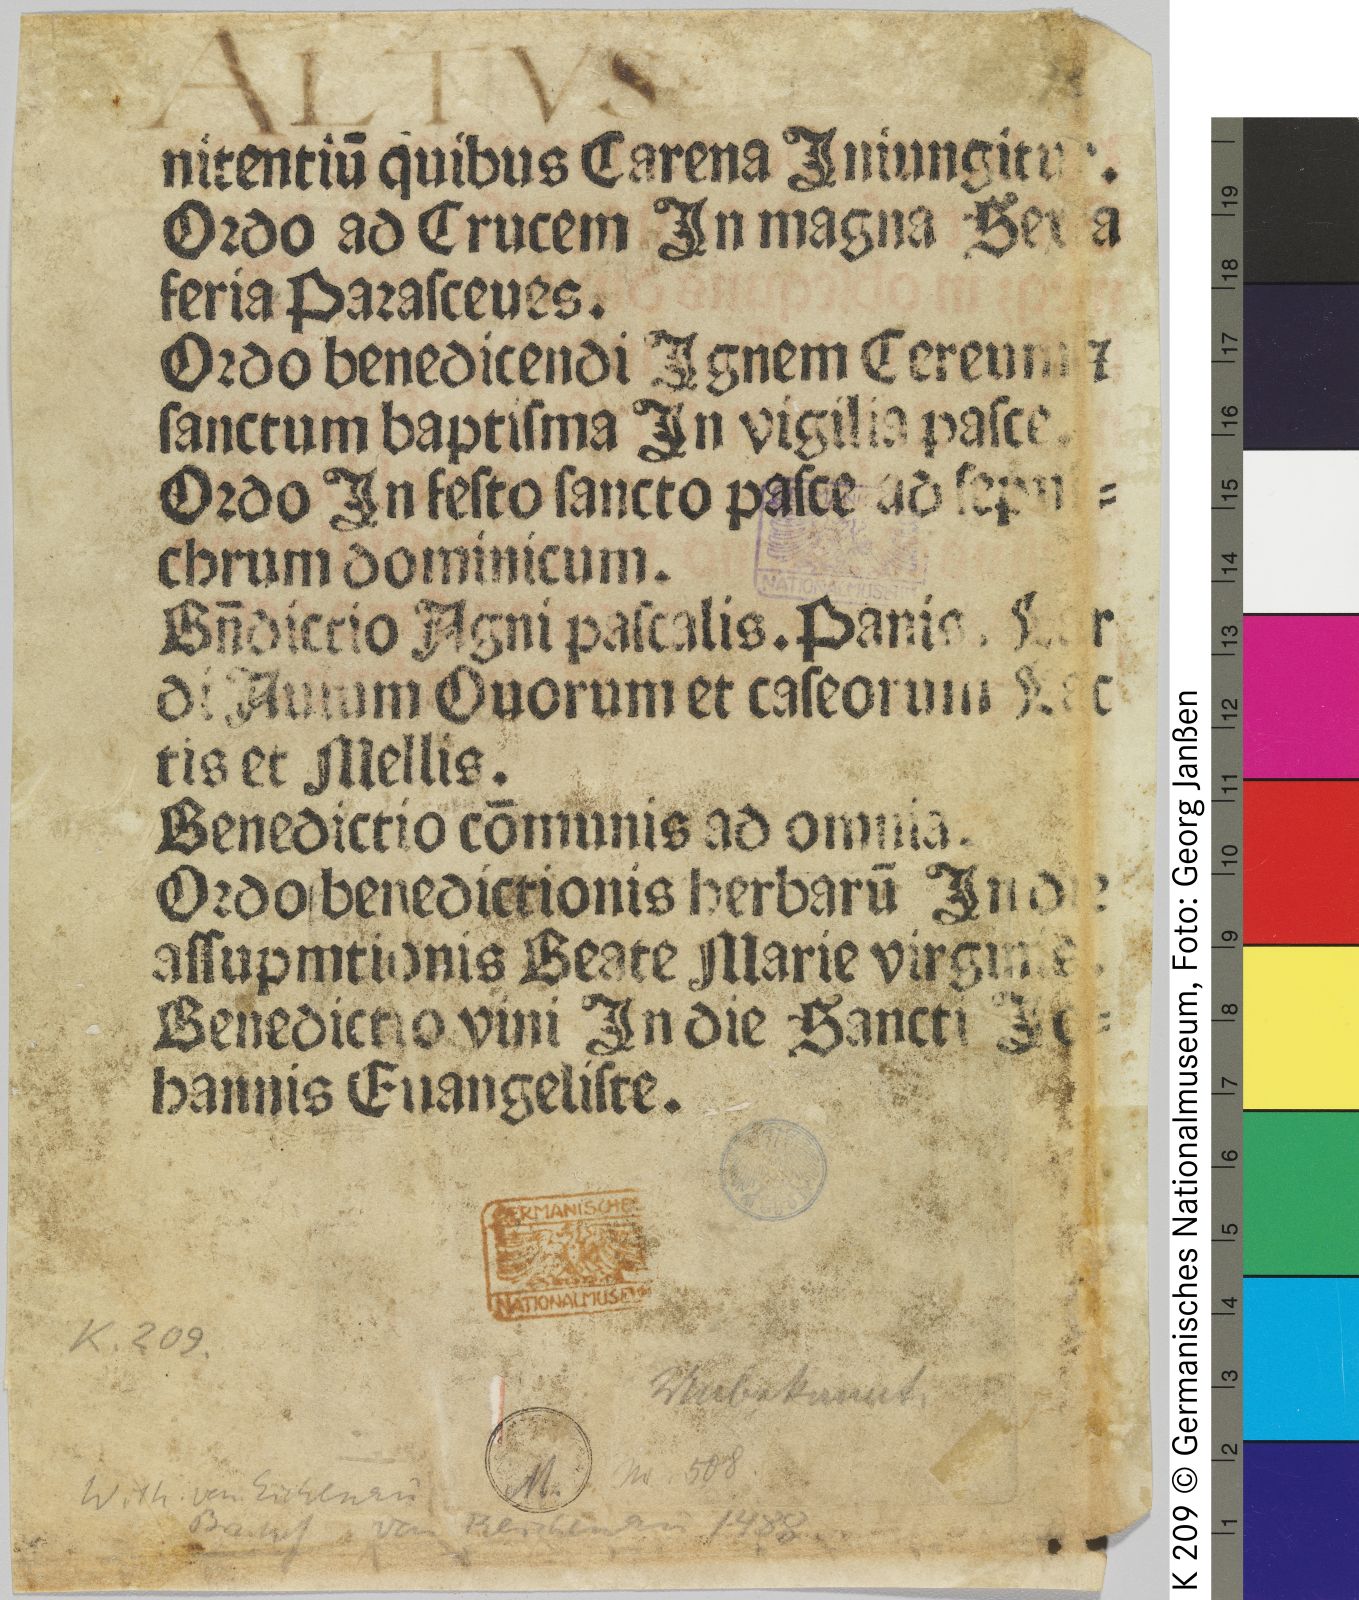 ALTVS
nitentiū quibus Carena Iniungitur.
Ordo ad Crucem In magna Sexta
feria Paraſceues.
Ordo benedicendi Ignem Cereum ⁊
ſanctum baptiſma In vigilia paſce.
Ordo In feſto ſancto paſce ad ſepul=
chrum dominicum.
Bn̄dictio Agni paſcalis. Panis. Lar
di Auium Ouorum et caſeorum Lac
tis et Mellis.
Benedictio cōmunis ad omnia.
Ordo benedictionis herbarū In die
aſſupmtionis Beate Marie virginis.
Benedictio vini In die Sancti Io=
hannis Euangeliſte.
NATIONALMUSEUM
GERMANISCHES
NATIONALMUSEUM
K. 209.
Unbekannt.
M. No. 508
von
von 1488
K 209 © Germanisches Nationalmuseum, Foto: Georg Janßen
19
18
17
16
15
14
13
12
11
10
9
8
7
6
5
4
3
2
1